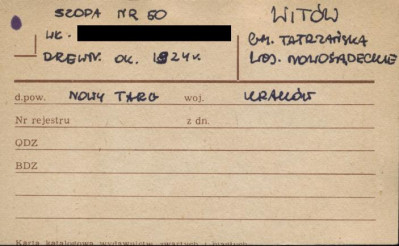 SZOPA NR 50
WŁ.
DREWN. OK. 1924 r.
WITÓW
GM. TATRZAŃSKA
WOJ. NOWOSĄDECKIE
d.pow. NOWY TARG woj. KRAKÓW
Nr rejestru z dn.
ODZ
BDZ
Karta katalogowa wydawnictw zwartych i ciągłych